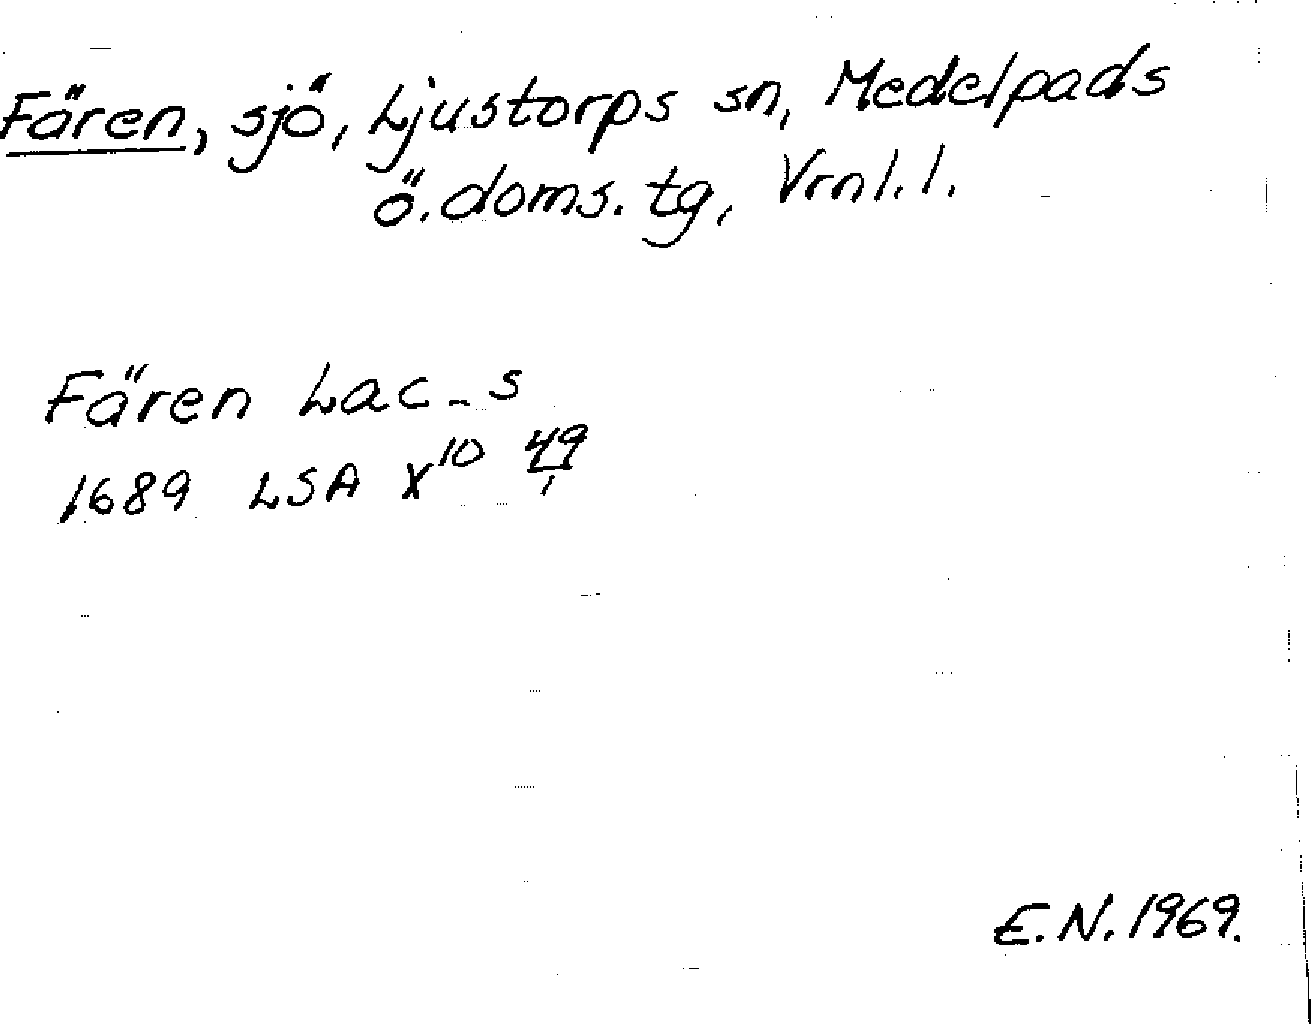 Fären, sjö, Ljustorps sn, Medelpads
ö. doms. tg, Vrnl. l.
Fären Lac_s
1689 LSA X10 49/1
E.N. 1969.